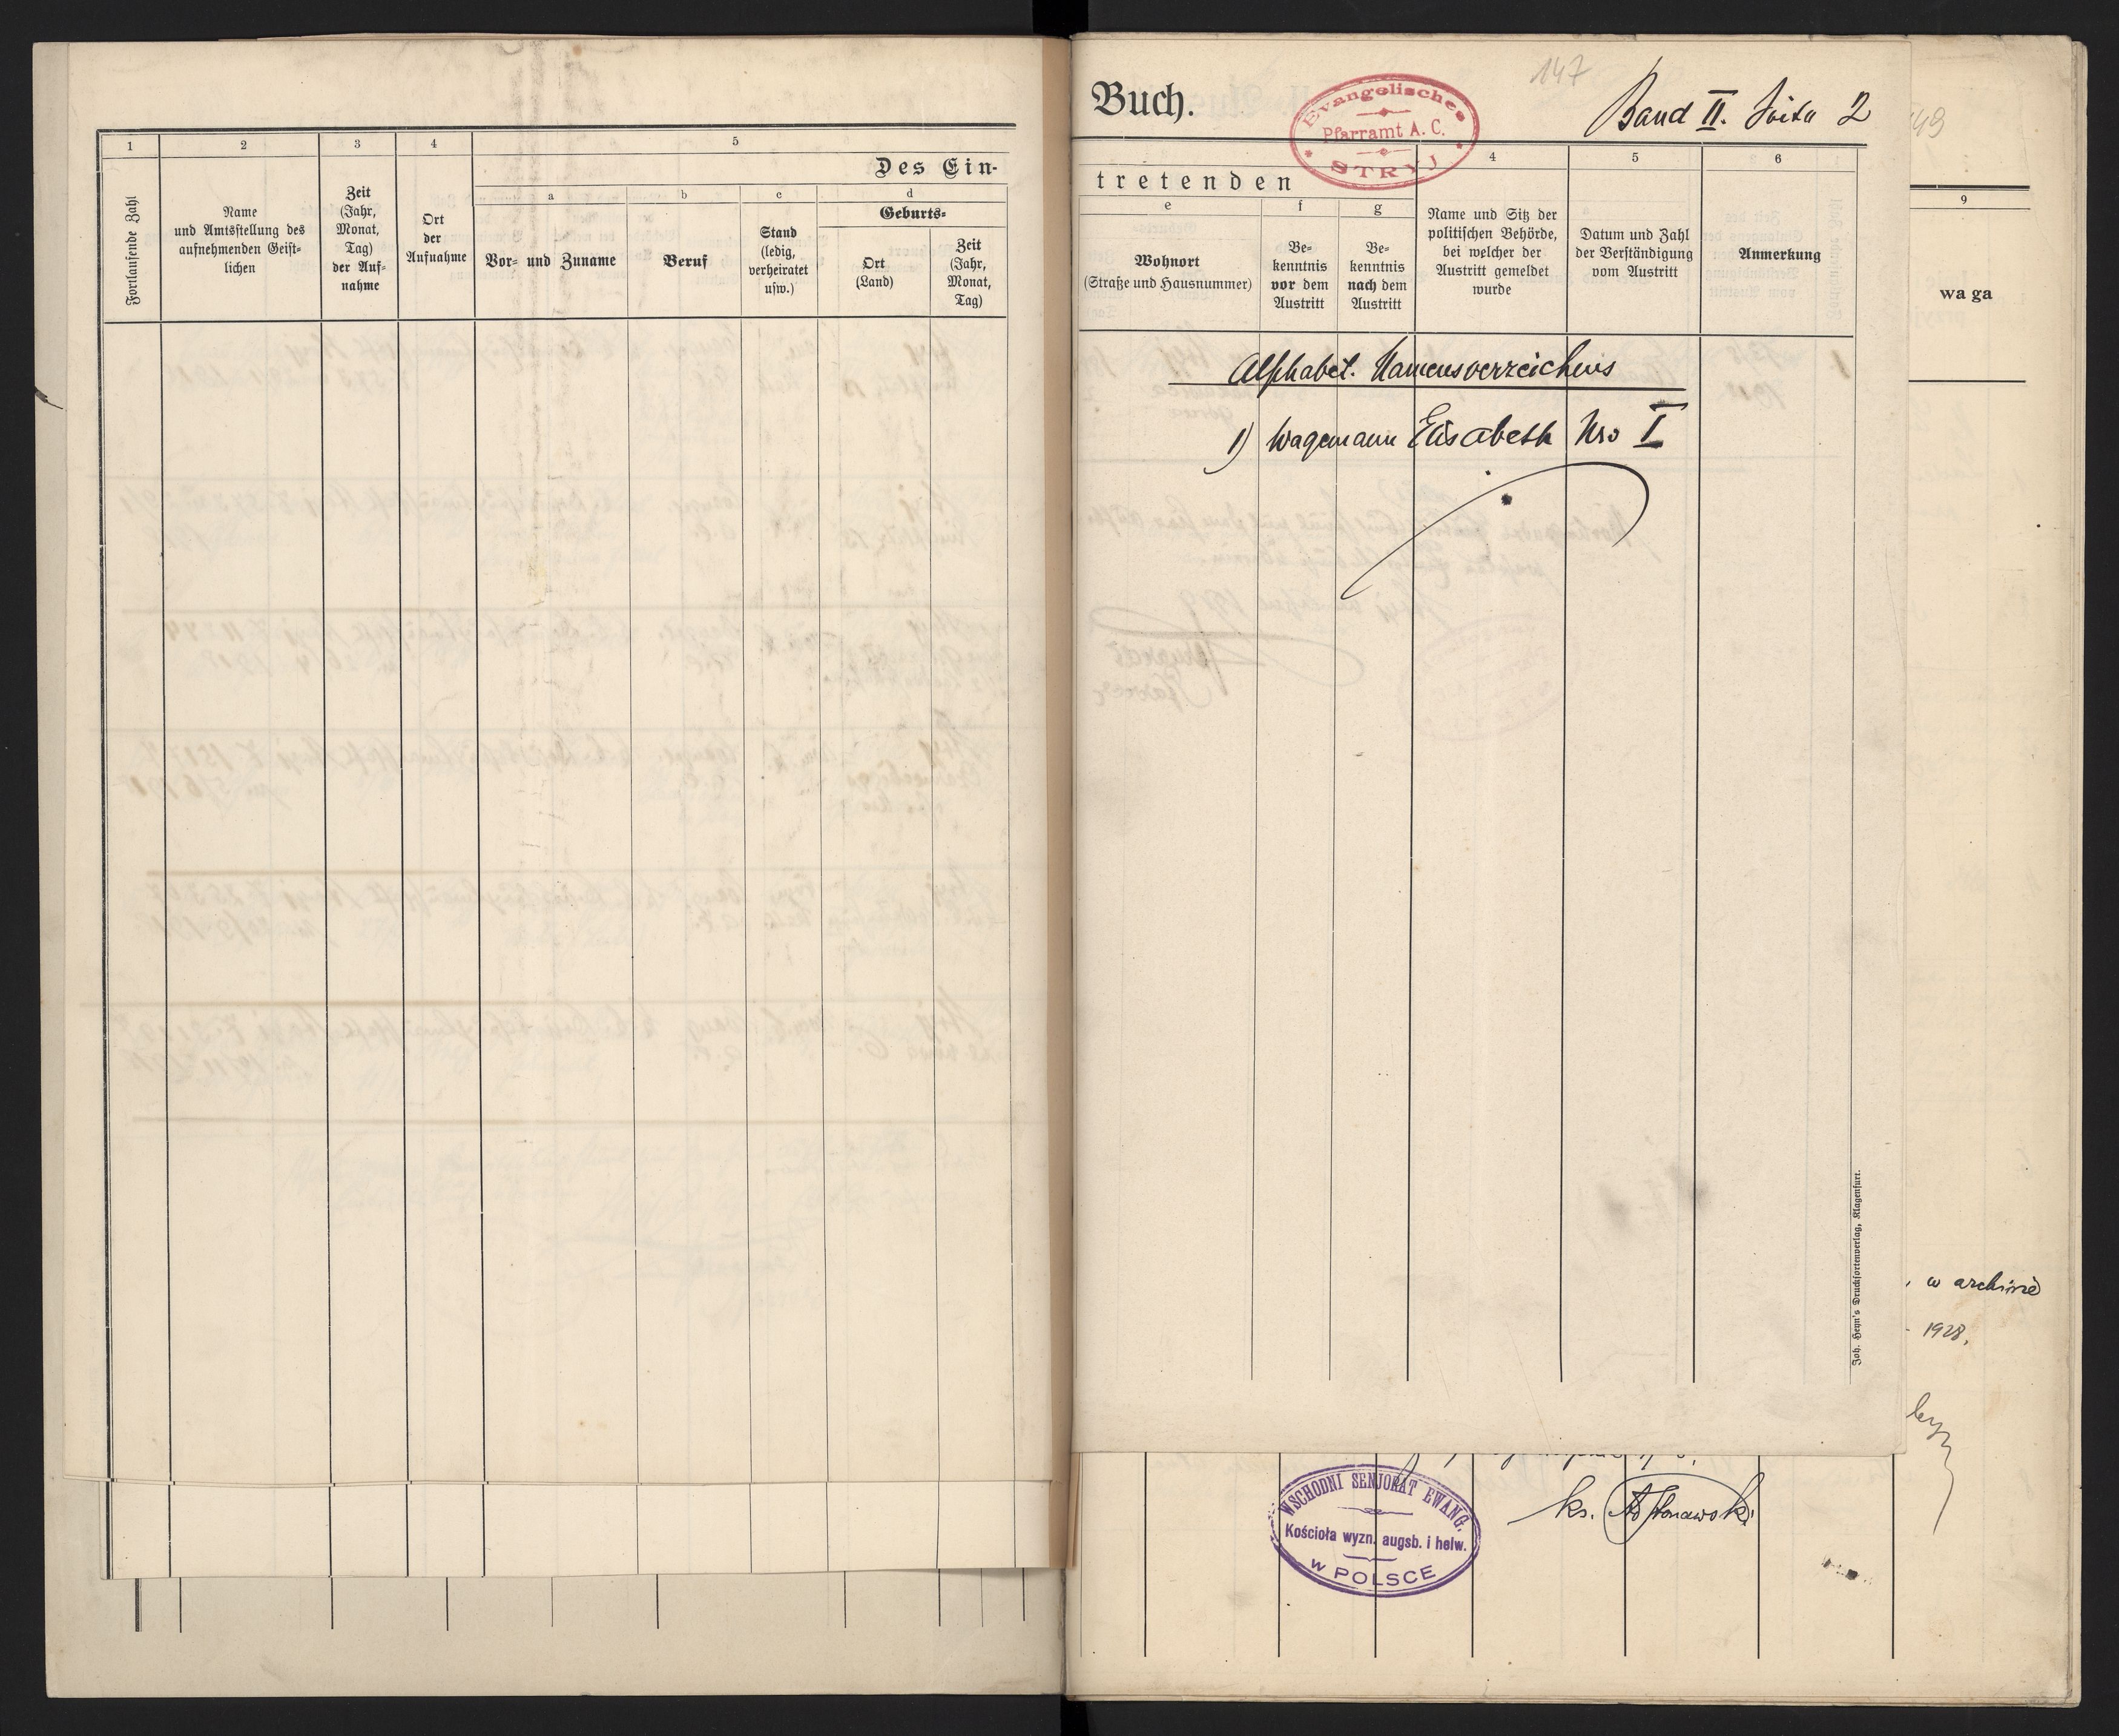 1
2
3
4
5
Des Ein-
a
b
c
d
Fortlaufende Zahl
Name
und Amtsstellung des
aufnehmenden Geist-
lichen
Zeit
(Jahr,
Monat,
Tag)
der Auf-
nahme
Ort
der
Aufnahme
Vor- und Zuname
Beruf
Stand
(ledig,
verheiratet
usw.)
Geburts-
Ort
(Land)
Zeit
(Jahr,
Monat,
Tag)
147
Buch.
Evangelisches
Pfarramt A. C.
STRYJ
Band II. Seite 2
4
5
6
tretenden
e
f
g
Wohnort
(Straße und Hausnummer)
Be-
kenntnis
vor dem
Austritt
Be-
kenntnis
nach dem
Austritt
Name und Sitz der
politischen Behörde,
bei welcher der
Austritt gemeldet
wurde
Datum und Zahl
der Verständigung
vom Austritt
Anmerkung
Alphabet. Namensverzeichnis
1) Wagemann Elisabeth Nro I
Joh. Heyn's Druchsortenverlag, Klagenfurt.
49
9
waga
w archiwie
1928.
WSCHODNI SENJORAT EWANG.
Kościoła wyzn. augsb. i helw.
w POLSCE
ks.